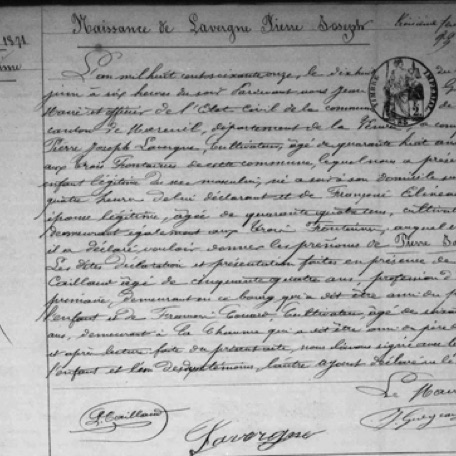 Naissance de Lavergne Pierre Joseph
1871
L'an mil huit cent soixante onze, le dix huit
juin à six heures du soir Pardevant nous Jean
Maire et officier de l'Etat Civil de la commune
canton de Mareuil, département de la Vendée a comp
Pierre Joseph Lavergne, cultivateur, âgé de quarante huit ans
aux trois Fontaines de cette commune, lequel nous a prés
enfant légitime du sexe masculin, né à soir à son domicile
quatre heures de lui déclarant et de Françoise
épouse légitime, âgée de quarante quatre ans, cultivat
demeurant également aux trois Fontaines, auquel e
il a déclaré vouloir donner les prénoms de Pierre Jo
Les dites déclaration et présentation faites en présence de
Caillaud âgé de cinquante quatre ans, profession d
primaire, demeurant en ce bourg qui a dit être ami du p
l'enfant et de cultivateur, âgé de
ans, demeurant à la Chaume qui a dit être ami du père d
et après lecture faite du présent acte, nous l'avons signé avec le
l'enfant et l'un des témoins, l'autre ayant déclaré ne le
Le Mair
Caillaud
Lavergne